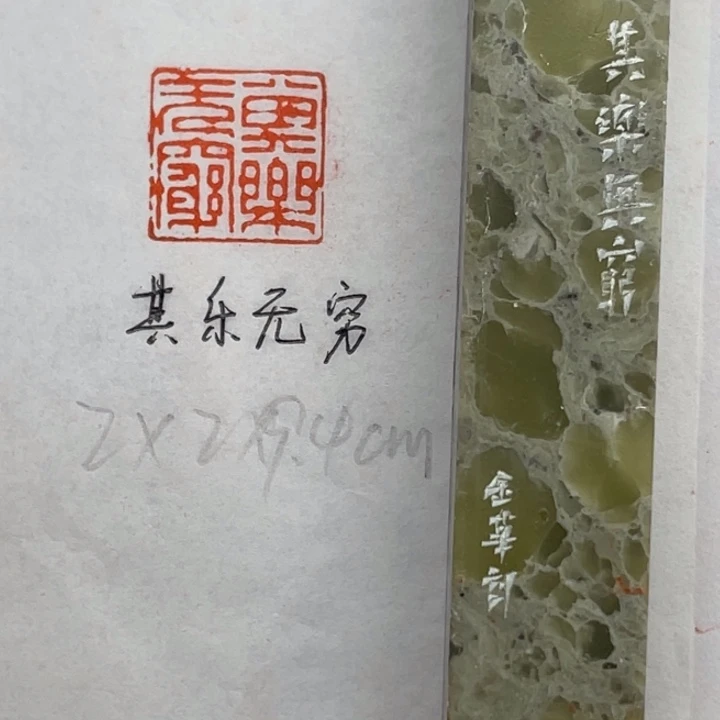 其樂
无窮
其乐无穷
2X2X9.4cm
其樂無窮
金華刻